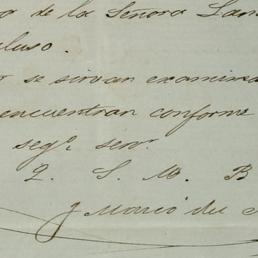 de la Señora
se sirvan examinar
encuentran conforme
seg.r serv.r
Q. S. M. B
J Mario del